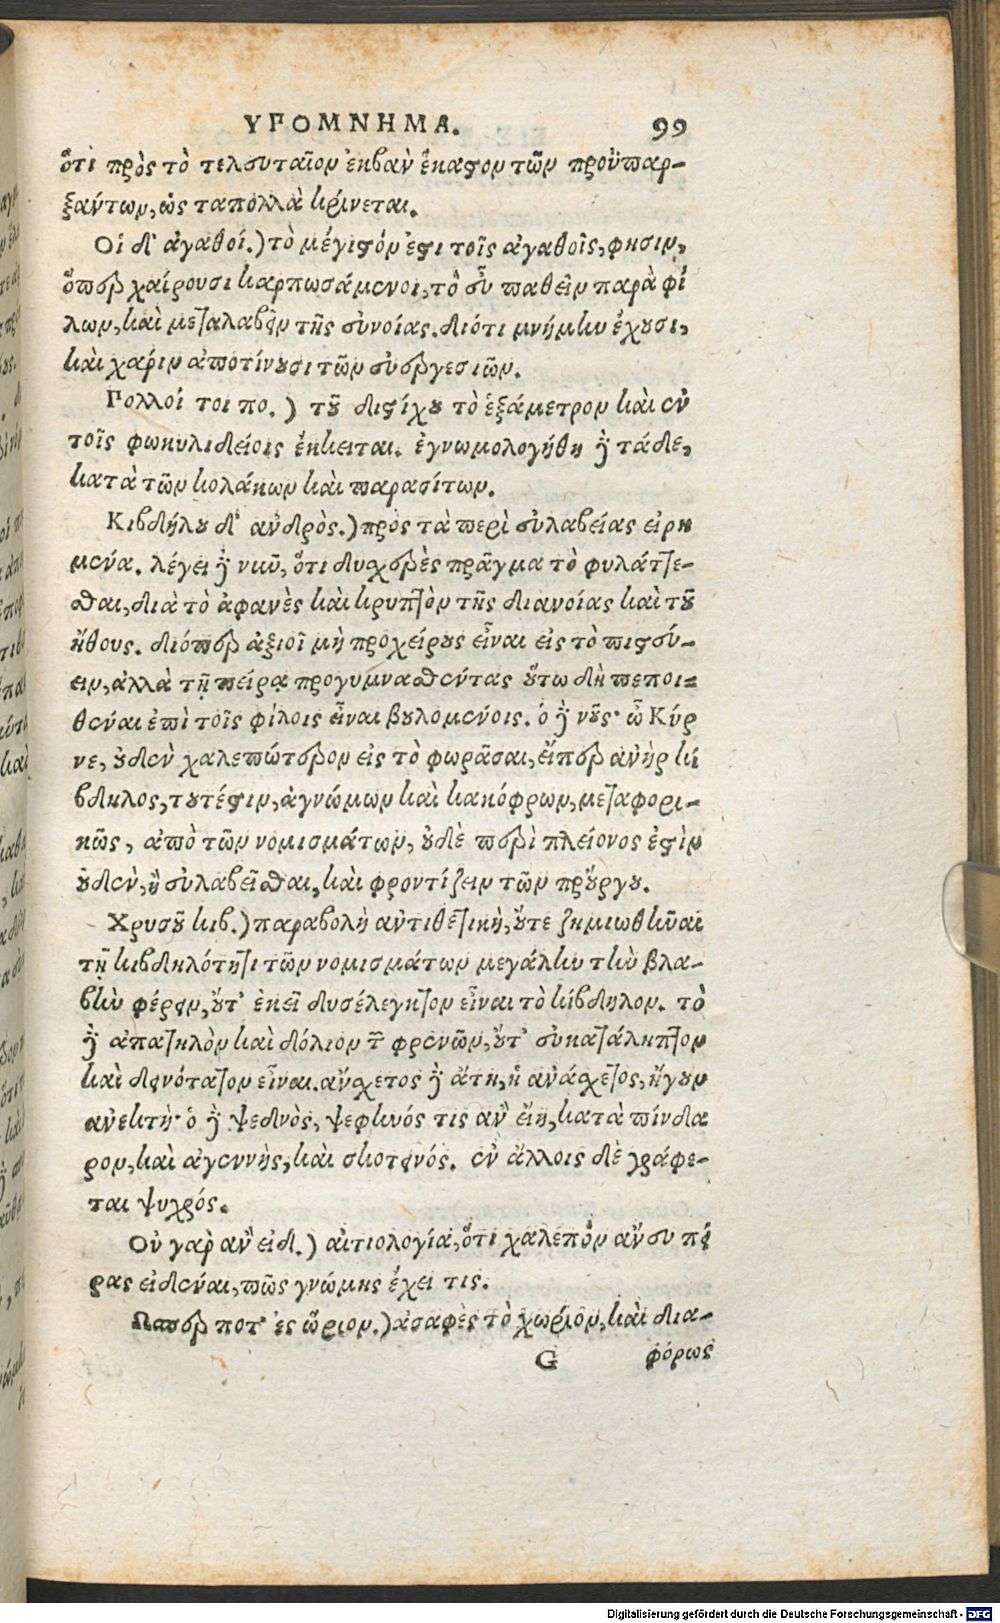 ΥΠΟΜΝΗΜΑ. 99
ὅτι πρὸς τὸ τελευταῖον ἐκβὰν ἕκαστον τῶν προϋπαρ-
ξάντων, ὡς ταπολλὰ κρίνεται.
Οἱ δ' ἀγαθοί.) τὸ μέγιστόν ἐστι τοῖς ἀγαθοῖς, φησιν,
ὅπερ χαίρουσι καρπωσάμενοι, τὸ εὖ παθεῖν παρὰ φί
λων, καὶ μεταλαβεῖν τῆς εὐνοίας. διότι μνήμην ἔχουσι,
καὶ χάριν ἀποτίνουσι τῶν εὐεργεσιῶν.
Πολλοί τοι πο.) τοῦ διστίχου τὸ ἑξάμετρον καὶ ἐν
τοῖς φωκυλιδείοις ἔκκειται. ἐγνωμολογήθη δὲ τάδε,
κατὰ τῶν κολάκων καὶ παρασίτων.
Κιβδήλου δ' ἀνδρὸς.) πρὸς τὰ περὶ εὐλαβείας εἰρη
μένα. λέγει δὲ νῦν, ὅτι δυσχερὲς πρᾶγμα τὸ φυλάττε-
σθαι, διὰ τὸ ἀφανὲς καὶ κρυπτὸν τῆς διανοίας καὶ τοῦ
ἤθους. διόπερ ἀξιοῖ μὴ προχείρους εἶναι εἰς τὸ πιστεύ-
ειν, ἀλλὰ τῇ πείρᾳ προγυμνασθέντας οὕτω δὴ πεποι-
θέναι ἐπὶ τοῖς φίλοις εἶναι βουλομένοις. ὁ δὲ νοῦς· ὦ Κύρ
νε, οὐδὲν χαλεπώτερον εἰς τὸ φωρᾶσαι, εἴπερ ἀνὴρ κί
βδηλος, τουτέστιν, ἀγνώμων καὶ κακόφρων, μεταφορι-
κῶς, ἀπὸ τῶν νομισμάτων, οὐδὲ περὶ πλείονος ἐστὶν
οὐδὲν, ἢ εὐλαβεῖσθαι, καὶ φροντίζειν τῶν προὔργου.
Χρυσοῦ κιβ.) παραβολὴ ἀντιθετικὴ, οὔτε ζημιωθῆναι
τῇ κιβδηλότητι τῶν νομισμάτων μεγάλην τὴν βλα-
βὴν φέρειν, οὔτ' ἐκεῖ δυσέλεγκτον εἶναι τὸ κίβδηλον. τὸ
δὲ ἀπατηλὸν καὶ δόλιον τῶν φρενῶν, οὔτ' εὐκατάληπτον
καὶ δεινότατον εἶναι. ἄνχετος δὲ ἄτη, ἡ ἀνάσχετος, ἤγουν
ἀνεκτὴ· ὁ δὲ ψεδνὸς, ψεφηνός τις ἂν εἴη, κατὰ πίνδα
ρον, καὶ ἀγεννὴς, καὶ σκοτεινός. ἐν ἄλλοις δὲ γράφε-
ται ψυχρός.
Οὐ γὰρ ἂν εἰδ.) αἰτιολογία, ὅτι χαλεπὸν ἄνευ πεί
ρας εἰδέναι, πῶς γνώμης ἔχει τις.
Ὥσπερ ποτ' ἐς ὥριον.) ἀσαφὲς τὸ χωρίον, καὶ δια-
G φόρως
Digitalisierung gefördert durch die Deutsche Forschungsgemeinschaft - DFG